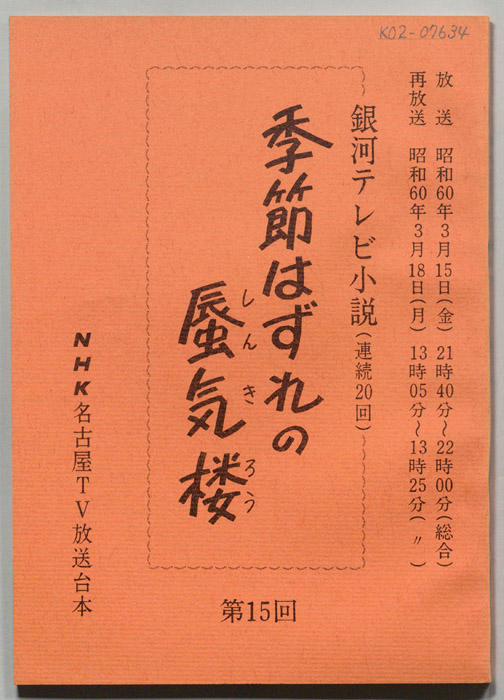 K02-07634
放　送　昭和60年3月15日(金) 21時40分～22時00分(総合)
再放送　昭和60年3月18日(月) 13時05分～13時25分(　〃　)
銀河テレビ小説(連続20回)
季節はずれの
蜃気楼
しんきろう
NHK名古屋TV放送台本
第15回